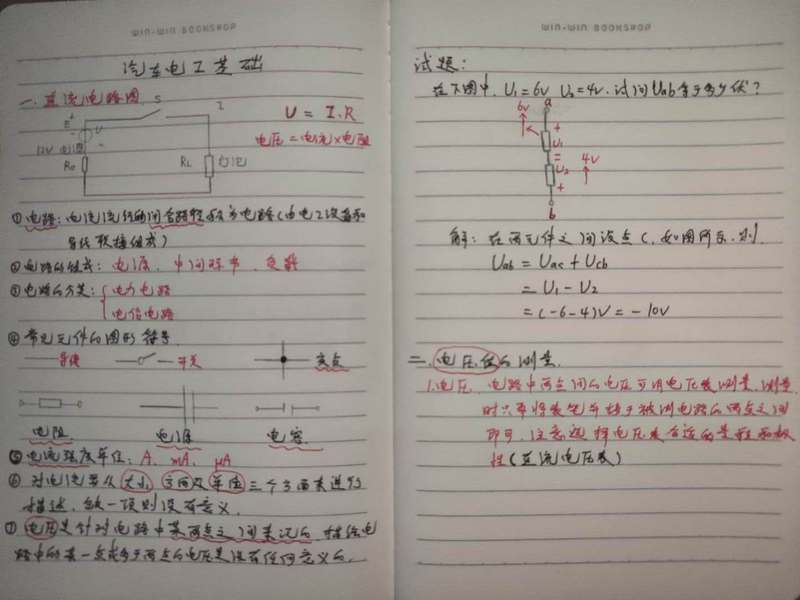 WIN-WIN BOOKSHOP
汽车电工基础
一.直流电路图
S
I
E
+
U
-
12V 电源
R₀
RL
灯泡
U = I.R
电压=电流×电阻
①电路:电流流行的闭合路径称为电路(由电工设备和
导线联接组成)
②电路的组成:电源、中间环节、负载
③电路的分类:
电力电路
电信电路
④常见元件的图形符号
导线
开关
交点
电阻
电源
电容
⑤电流强度单位:A、mA、μA
⑥对电流要从大小、方向及单位三个方面来进行
描述,缺一项则没有意义.
⑦电压是针对电路中某两点之间来说的,描绘电
路中的某一点或多于两点的电压是没有任何意义的.
WIN-WIN BOOKSHOP
试题:
在下图中,U₁=6v U₂=4v.试问Uab等于多少伏?
6v
a
+
U₁
U₂
4v
+
b
解:在两元件之间设点C,如图所示,则.
Uab = Uac + Ucb
= U₁ - U₂
= (-6-4)V = -10V
二.电压值的测量.
1.电压.电路中两点间的电压可用电压表测量,测量
时只要将表笔并接于被测电路的两点之间
即可,注意选择电压表合适的量程和极
性(直流电压表)